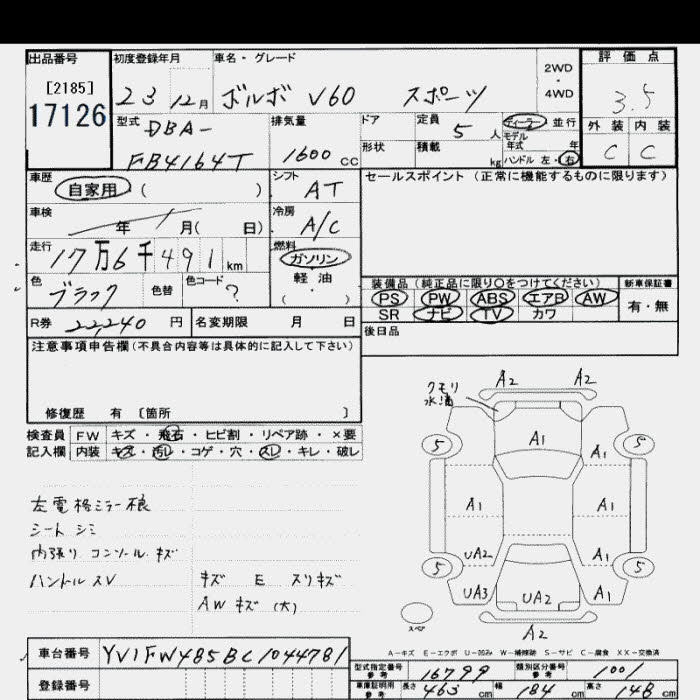 出品番号 初度登録年月 車名・グレード 評価点
[2185] 2WD
17126 23 12月 ボルボ V60 スポーツ ・ 4WD 3.5
型式 DBA- 排気量 ドア 定員 5 人 ディーラー 並行 外装 内装
FB4164T 1600 cc 形状 積載 kg モデル年式 年 C C
ハンドル 左・右
車歴 自家用 ( ) シフト AT セールスポイント (正常に機能するものに限ります)
車検 年 月( 日) 冷房 A/C
走行 17万6千491 km 燃料 ガソリン
軽油
( ・ )
色 ブラック 色替 色コード ?
装備品 (純正品に限り○をつけてください) 新車保証書
PS PW ABS エアB AW 有・無
SR ナビ TV カワ
R券 22,240 円 名変期限 月 日 後日品
注意事項申告欄 (不具合内容等は具体的に記入して下さい)
修復歴 有 〔箇所 〕
検査員 FW キズ・飛石・ヒビ割・リペア跡・×要
記入欄 内装 キズ・汚レ・コゲ・穴・スレ・キレ・破レ
左電格ミラー
シート シミ
内張り コンソール キズ
ハンドル スレ キズ E スリキズ
AW キズ (大)
クモリ
水滴
A2 A2
5 A1 5
A1 A1
UA2 A1
5 5
UA3 UA2 A1
スペア
A2
A-キズ E-エクボ U-凹み W-補修跡 S-サビ C-腐食 XX-交換済
車台番号 YV1FW485BC1044781
登録番号
型式指定番号 参考 16799 類別区分番号 参考 1001
車庫証明用 参考 長さ 463 cm 幅 184 cm 高さ 148 cm